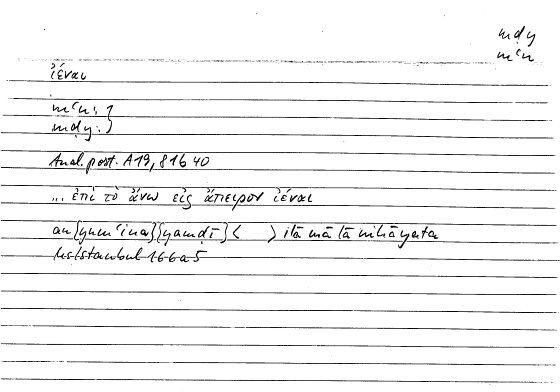 mḍy
mʿn
ἰέναι
mʿn:}
mḍy:}
Anal. post. A19, 81b40
... ἐπὶ τὸ ἄνω εἰς ἄπειρον ἰέναι
an {yumʿina} {yamḍī} < > ilā mā lā nihāyata
Hs Istanbul 166a5